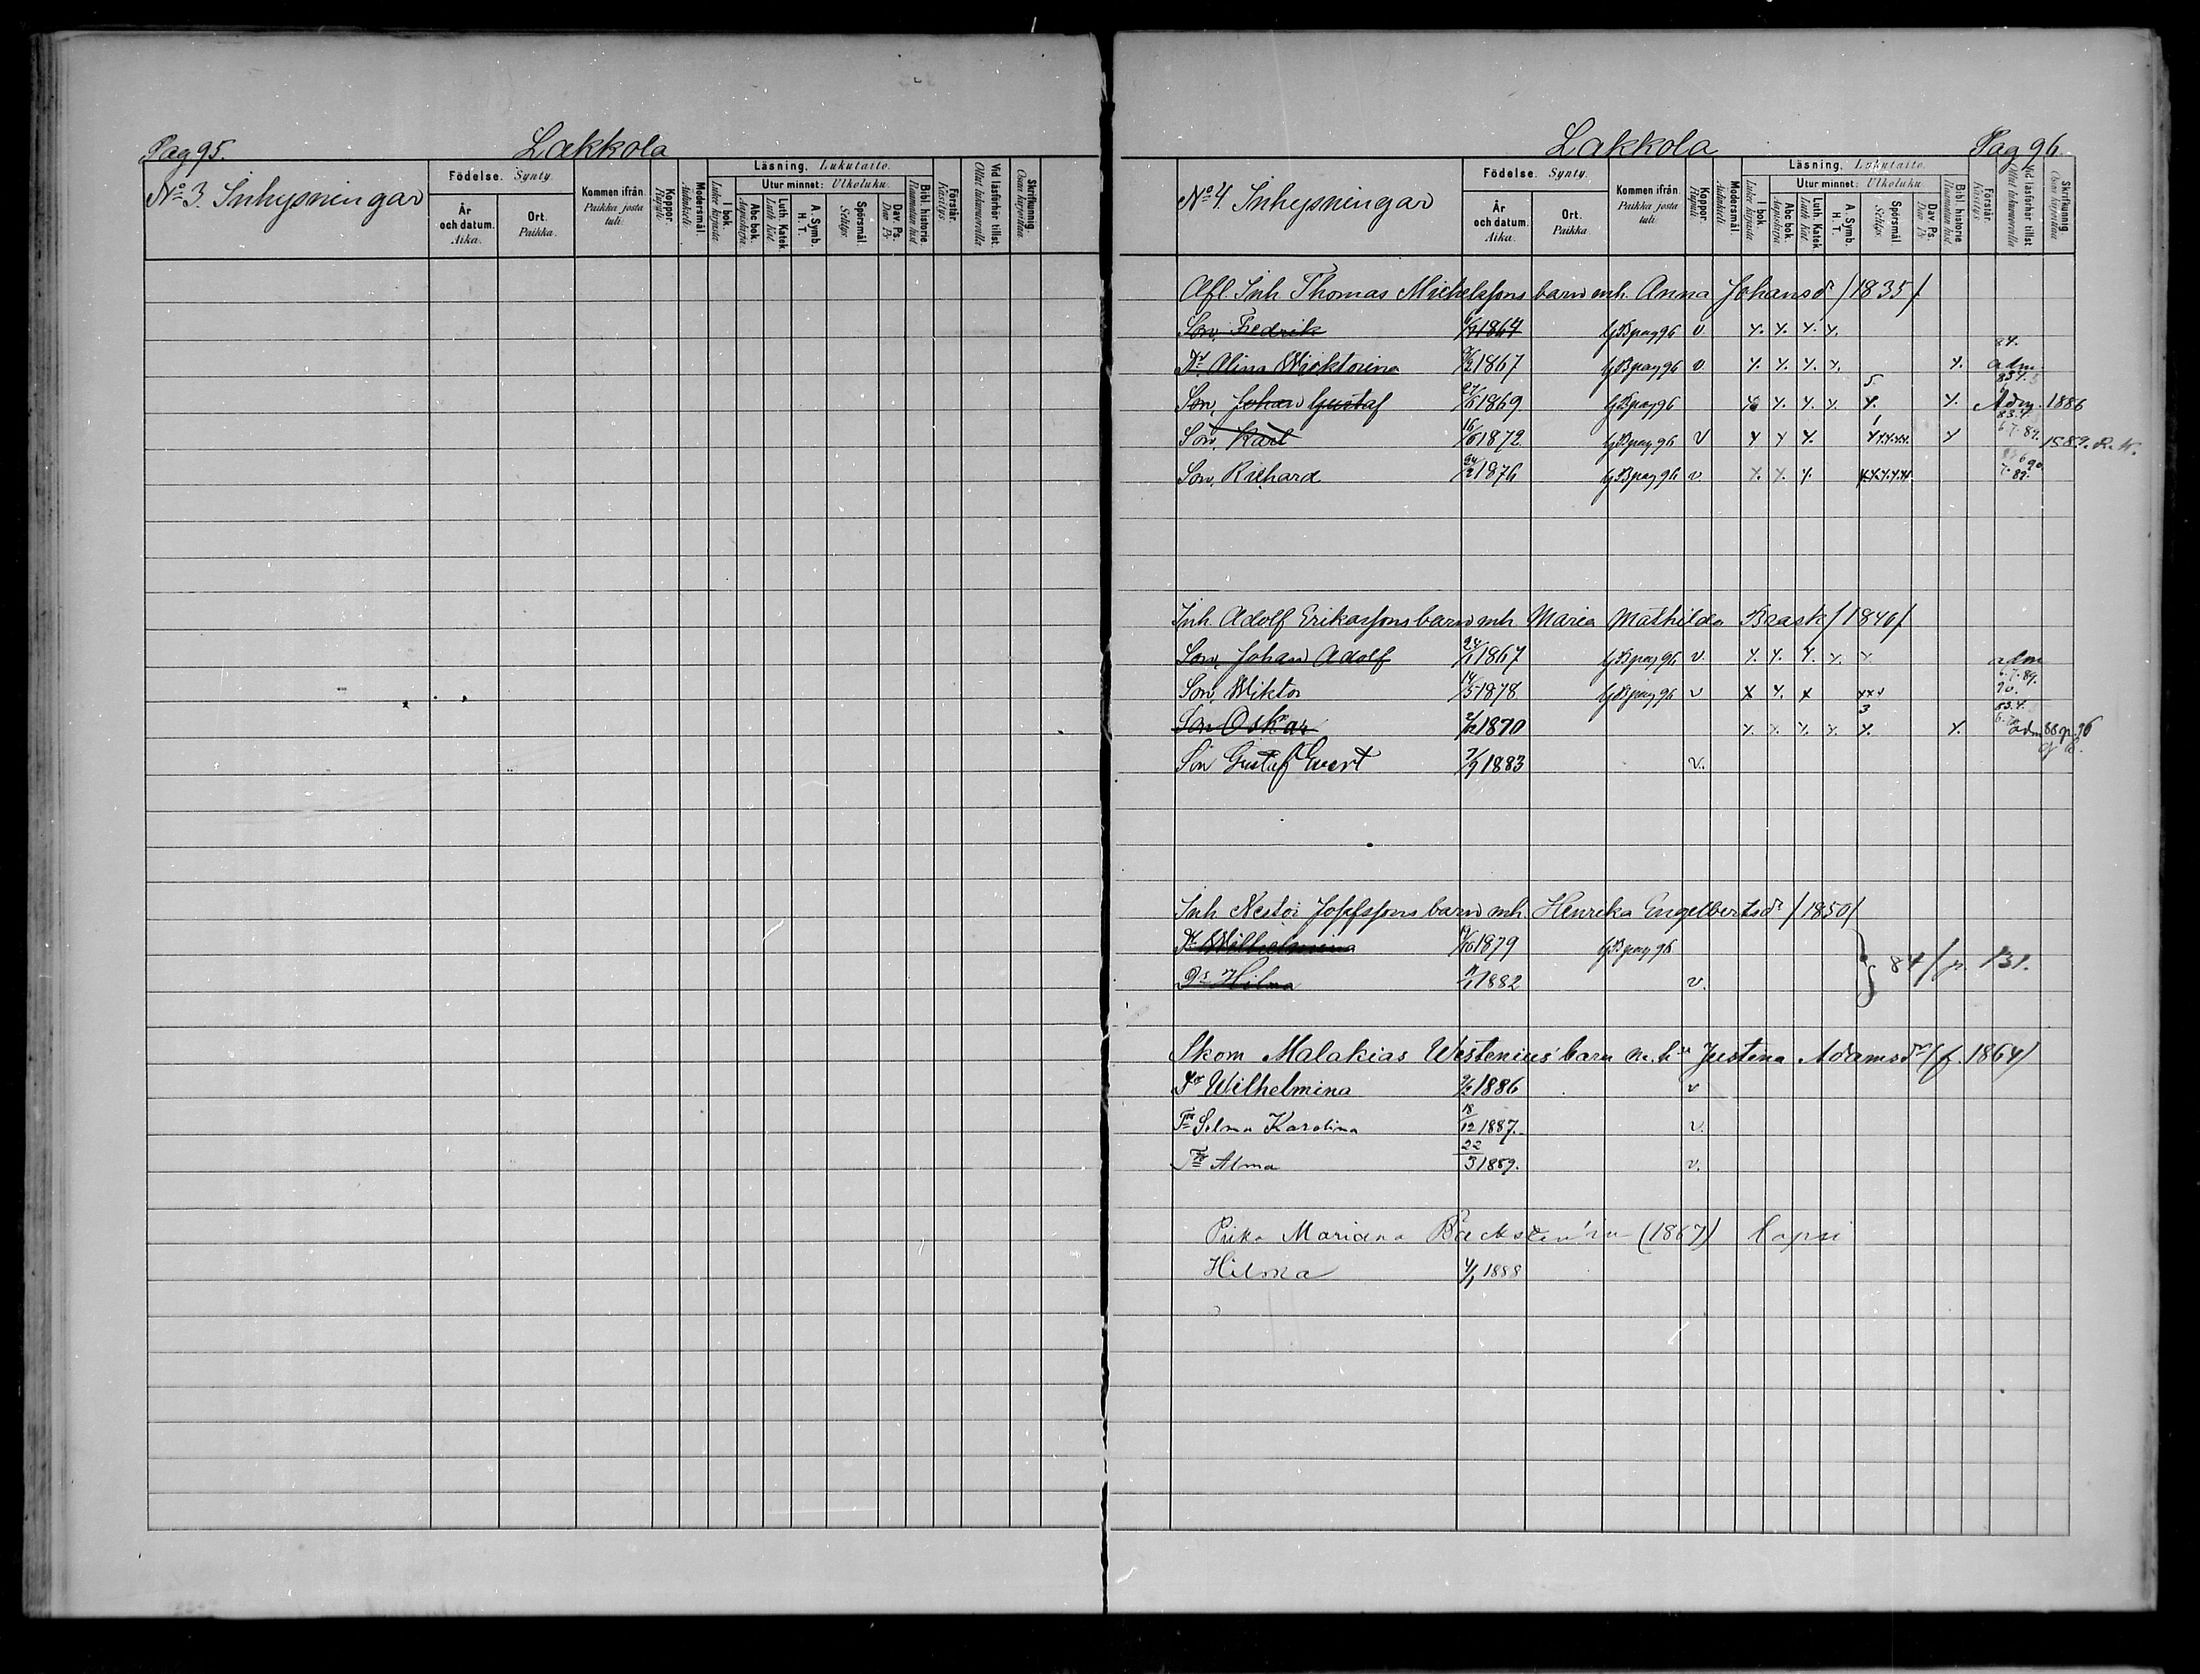 Pag 95. Lakkola
No 3. Inhysningar
Födelse. Synty.
År och datum. Aika.
Ort. Paikka.
Kommen ifrån. Paikka josta tuli.
Koppor. Rupuli
Modersmål. Äidinkieli
Läsning. Lukutaito.
I bok. Lukee kirjasta
Utur minnet: Ulkoluku.
Abc bok. Aapiskirja
Luth. Katek. Luth. Kat
A. Symb. H. T.
Spörsmål. Selitys
Dav. Ps. Dav. Ps
Bibl. historie
Förstår. Käsitys.
Vid läsförhör tillst. Ollut lukuvuorolla
Skrifkunnig. Osaa kirjoittaa
Lakkola Pag 96
No 4. Inhysningar
Födelse. Synty.
År och datum. Aika.
Ort. Paikka.
Kommen ifrån. Paikka josta tuli.
Koppor. Rupuli
Modersmål. Äidinkieli
Läsning. Lukutaito.
I bok. Lukee kirjasta
Utur minnet: Ulkoluku
Abc bok. Aapiskirja
Luth. Katek. Luth. Kat
A. Symb. H. T.
Spörsmål. Selitys
Dav. Ps. Dav. Ps
Bibl. historie
Förstår. Käsitys.
Vid läsförhör tillst. Ollut lukuvuorolla
Skrifkunnig. Osaa kirjoittaa
Afl. Inh. Thomas Michelssons barn mh. Anna Johansdr /1835/
Son, Fredrik 1864 pag 96 v.
Dr. Alina Wiktorina 1867 pag 96 v. adm
Son, Johan Gustaf 1869 pag 96 Adm. 1886
Son, Karl 16/6 1872 pag 96 v 1589. R. K.
Son, Richard 1876 pag 96 v
Inh. Adolf Erikssons barn mh. Maria Mathilda Baask /1840/
Son, Johan Adolf 24/1 1867 pag 96 v. adm
Son, Wiktor 14/5 1878 pag 96 v
Son Oskar 1870 adm 88 p. 96
Son Gustaf Evert 7/9 1883 v.
Inh. Nestor Josefssons barn mh. Henrika Engelbertsdr /1850/
Dr Wilhelmina 1879 pag 96
Dr Hilma 1882 v. 84/p. 131.
Skom Malakias Westenius' barn m. h. Justina Adamsdr (f. 1864)
Tr Wilhelmina 9/2 1886 v
Tr Selma Karolina 18/12 1887. v.
Tr Alma 22/3 1889. v.
Piika Mariana Backsten'in (1867) lapsi
Hilma 4/1 1888